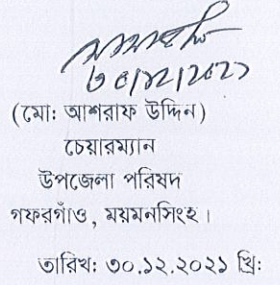 ৩০/১২/২০২১
(মো: আশরাফ উদ্দিন)
চেয়ারম্যান
উপজেলা পরিষদ
গফরগাঁও, ময়মনসিংহ।
তারিখ: ৩০.১২.২০২১ খ্রি: